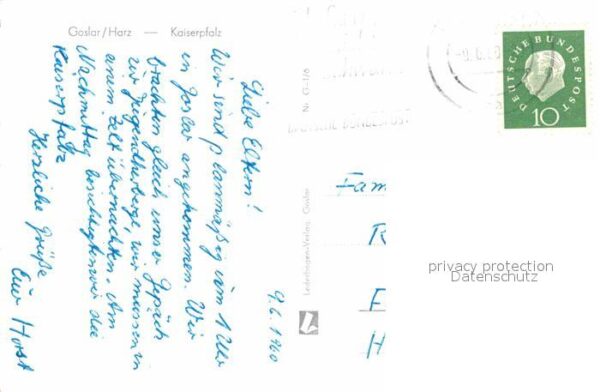 Goslar/Harz — Kaiserpfalz
9.6.1960
Liebe Eltern!
Wir sind planmäßig um 1 Uhr
in Goslar angekommen. Wir
brachten gleich unser Gepäck
zur Jugendherberge, wir müssen in
einem Zelt übernachten. Am
Nachmittag besichtigten wir die
Kaiserpfalz.
Herzliche Grüße
Euer Horst
Nr. G-1/6
Lederbogen-Verlag, Goslar
DEUTSCHE BUNDESPOST
DEUTSCHE BUNDESPOST
10
Fam
R
F
H
privacy protection
Datenschutz